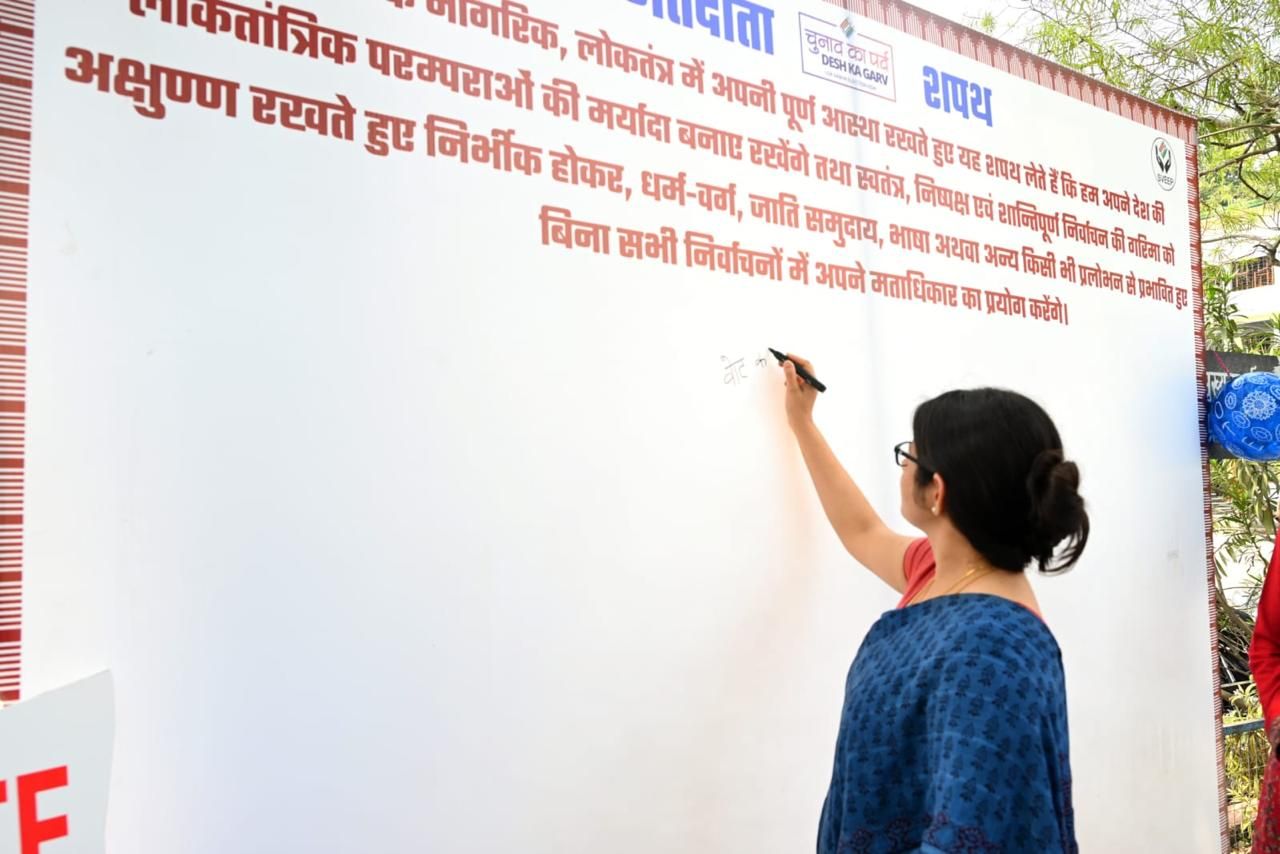 मतदाता
शपथ
चुनाव का पर्व
DESH KA GARV
नागरिक, लोकतंत्र में अपनी पूर्ण आस्था रखते हुए यह शपथ लेते हैं कि हम अपने देश की
लोकतांत्रिक परम्पराओं की मर्यादा बनाए रखेंगे तथा स्वतंत्र, निष्पक्ष एवं शान्तिपूर्ण निर्वाचन की गरिमा को
अक्षुण्ण रखते हुए निर्भीक होकर, धर्म-वर्ग, जाति समुदाय, भाषा अथवा अन्य किसी भी प्रलोभन से प्रभावित हुए
बिना सभी निर्वाचनों में अपने मताधिकार का प्रयोग करेंगे।
SVEEP
वोट क